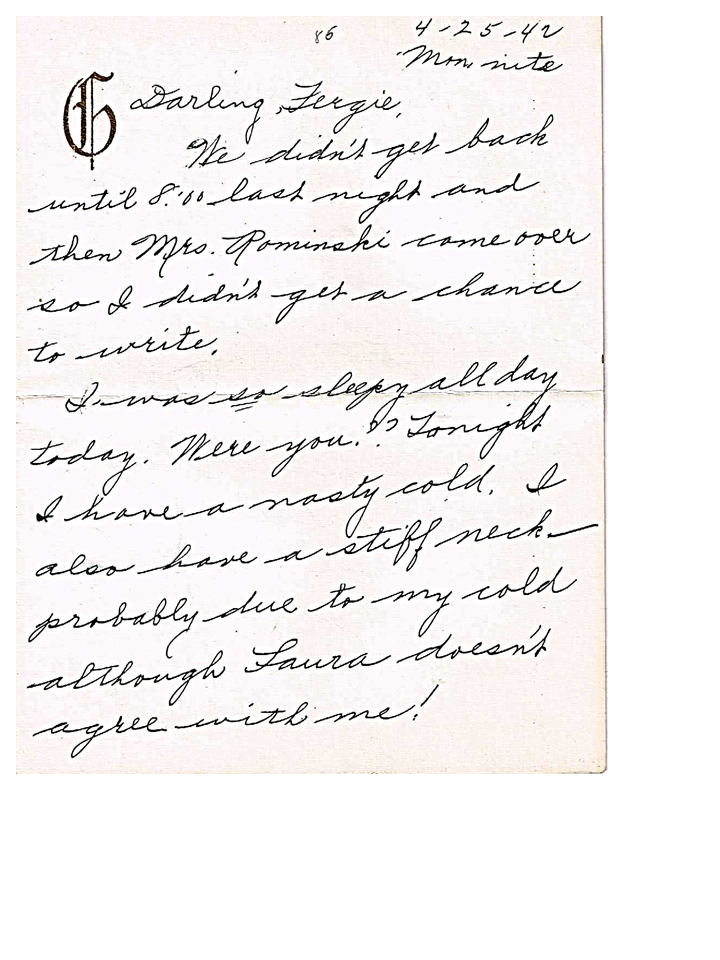 86
4-25-42
Mon. nite
G
Darling Fergie,
We didn't get back
until 8:00 last night and
then Mrs. Rominski came over
so I didn't get a chance
to write.
I was so sleepy all day
today. Were you?? Tonight
I have a nasty cold. I
also have a stiff neck—
probably due to my cold
although Laura doesn't
agree with me!